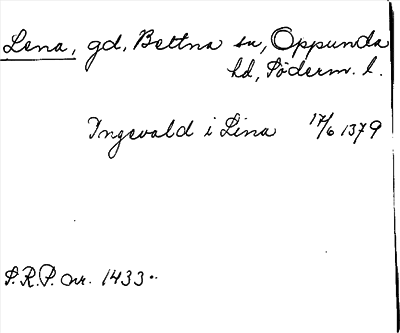 Lena, gd, Bettna sn, Oppunda
hd, Söderm. l.
Ingevald i Lina 17/6 1379
S.R.P. nr. 1433.